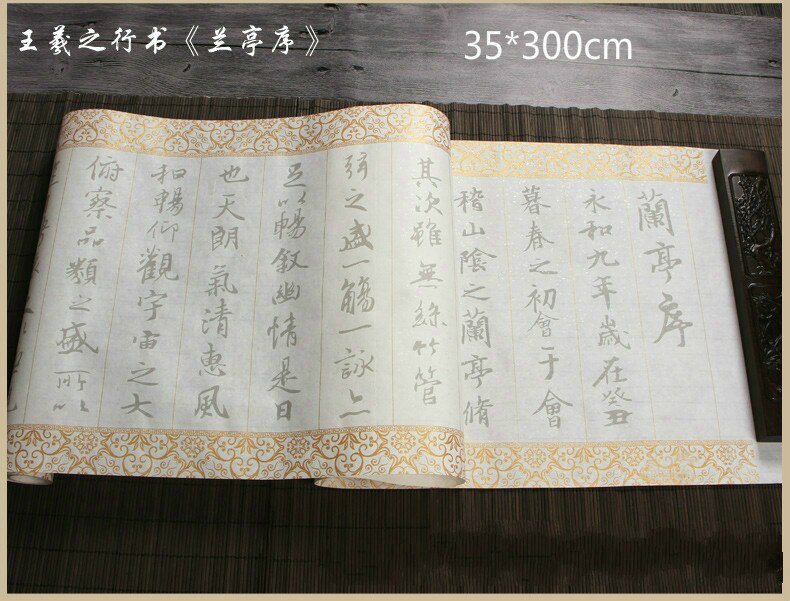 王羲之行书《兰亭序》
35*300cm
蘭亭序
永和九年歲在癸丑
暮春之初會于會
稽山陰之蘭亭脩
其次雖無絲竹管
弦之盛一觴一詠亦
足以暢叙幽情是日
也天朗氣清惠風
和暢仰觀宇宙之大
俯察品類之盛所以